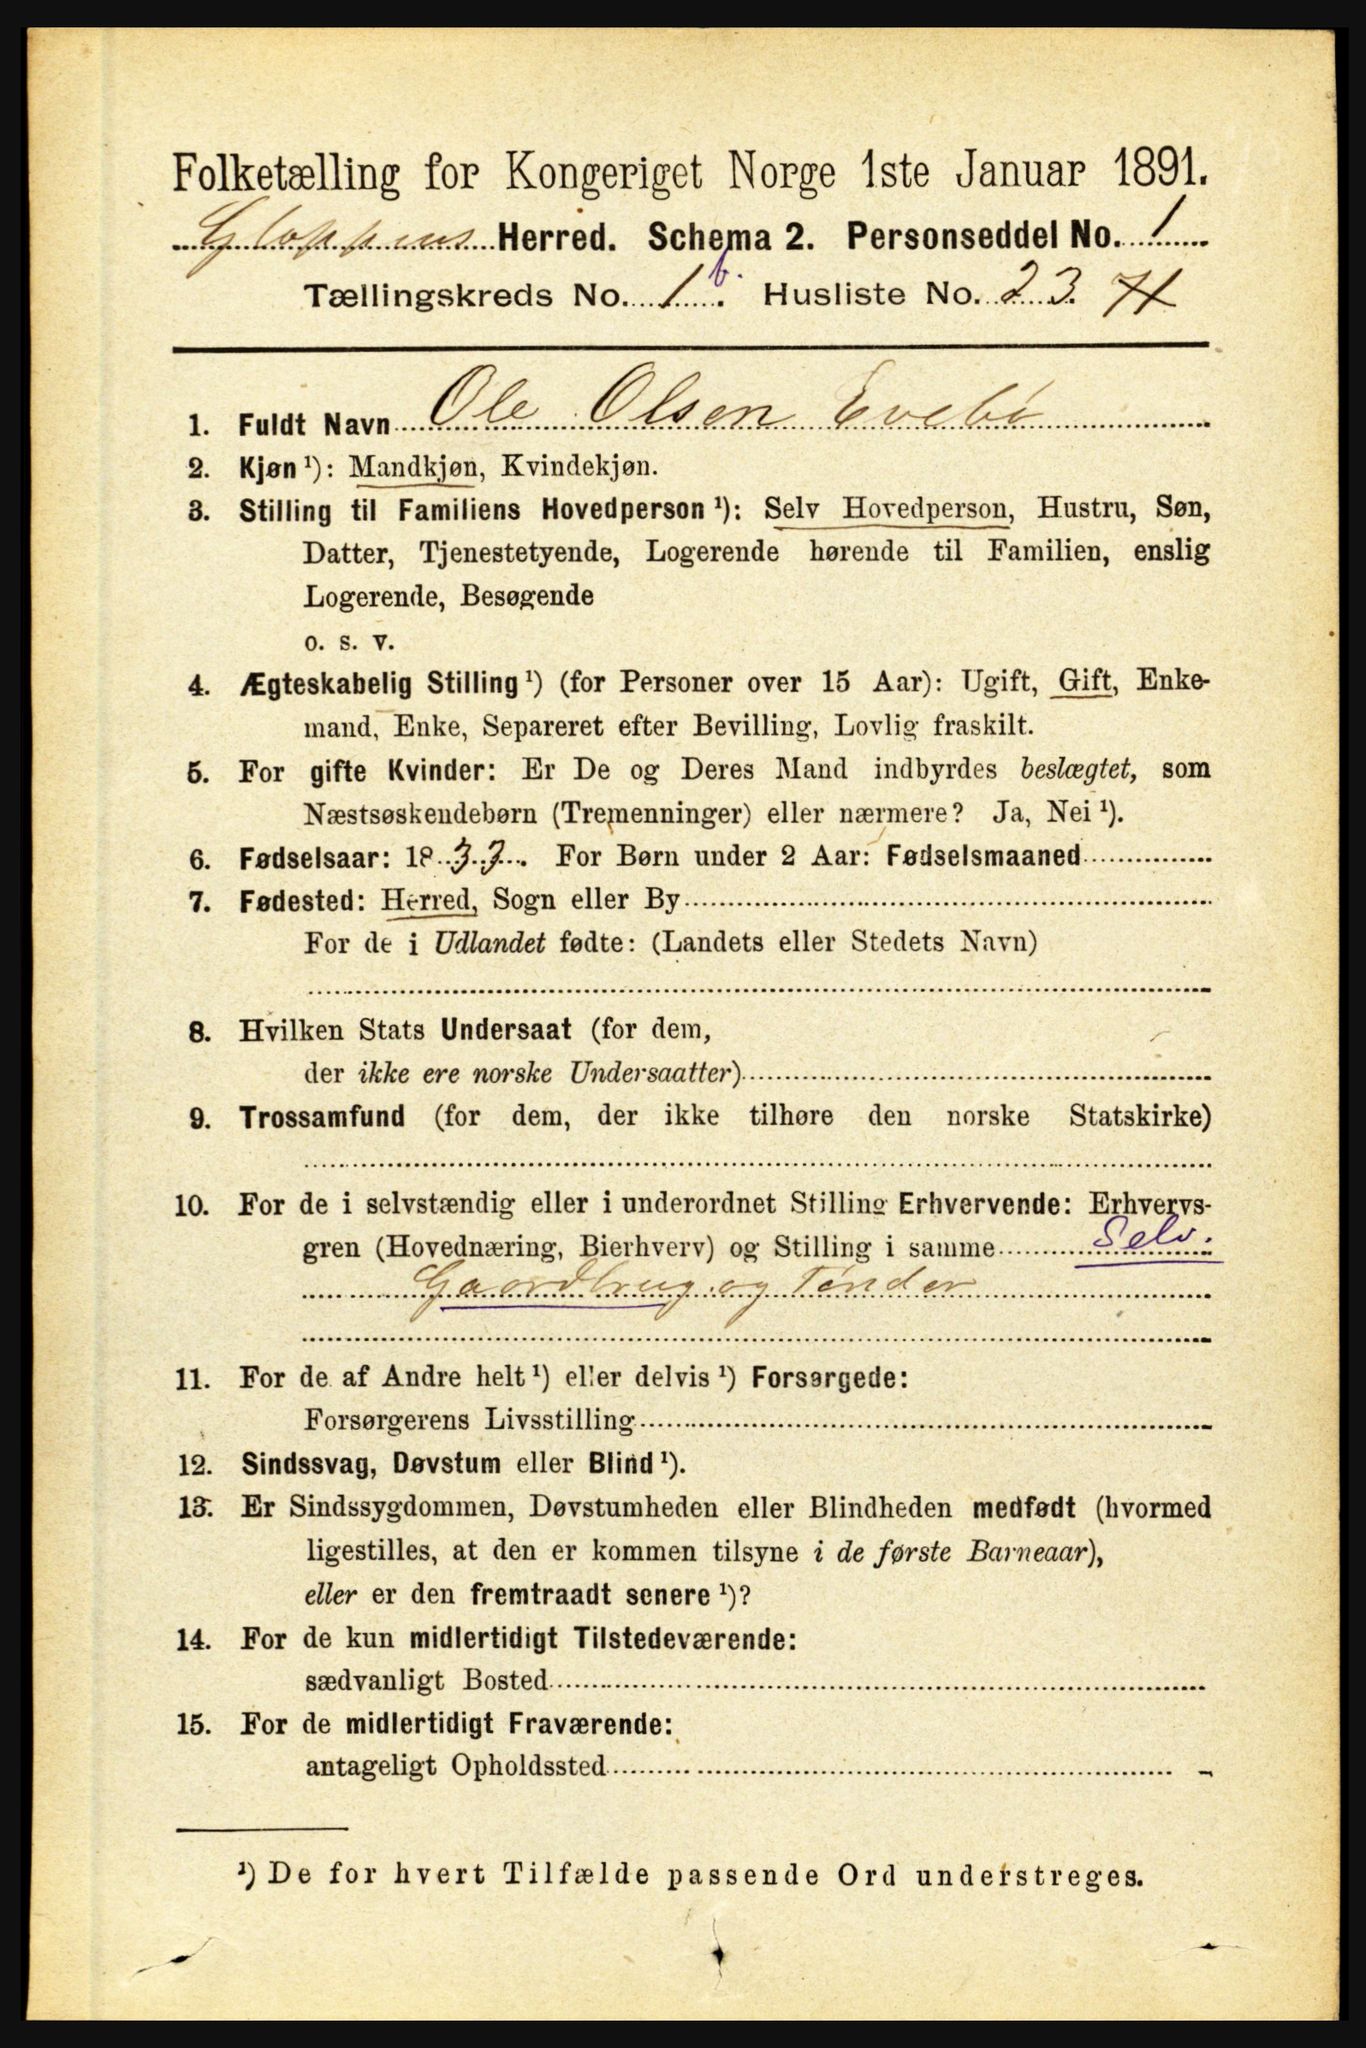 Folketælling for Kongeriget Norge 1ste Januar 1891.
Gloppens Herred. Schema 2. Personseddel No. 1
Tællingskreds No. 1 b. Husliste No. 23.
1. Fuldt Navn Ole Olsen Evebø
2. Kjøn ¹): Mandkjøn, Kvindekjøn.
3. Stilling til Familiens Hovedperson ¹): Selv Hovedperson, Hustru, Søn,
Datter, Tjenestetyende, Logerende hørende til Familien, enslig
Logerende, Besøgende
o. s. v.
4. Ægteskabelig Stilling ¹) (for Personer over 15 Aar): Ugift, Gift, Enke-
mand, Enke, Separeret efter Bevilling, Lovlig fraskilt.
5. For gifte Kvinder: Er De og Deres Mand indbyrdes beslægtet, som
Næstsøskendebørn (Tremenninger) eller nærmere? Ja, Nei ¹).
6. Fødselsaar: 1833. For Børn under 2 Aar: Fødselsmaaned
7. Fødested: Herred, Sogn eller By
For de i Udlandet fødte: (Landets eller Stedets Navn)
8. Hvilken Stats Undersaat (for dem,
der ikke ere norske Undersaatter)
9. Trossamfund (for dem, der ikke tilhøre den norske Statskirke)
10. For de i selvstændig eller i underordnet Stilling Erhvervende: Erhvervs-
gren (Hovednæring, Bierhverv) og Stilling i samme Selv.
Gaardbrug og Tønder
11. For de af Andre helt ¹) eller delvis ¹) Forsørgede:
Forsørgerens Livsstilling
12. Sindssvag, Døvstum eller Blind ¹).
13. Er Sindssygdommen, Døvstumheden eller Blindheden medfødt (hvormed
ligestilles, at den er kommen tilsyne i de første Barneaar),
eller er den fremtraadt senere ¹)?
14. For de kun midlertidigt Tilstedeværende:
sædvanligt Bosted
15. For de midlertidigt Fraværende:
antageligt Opholdssted
¹) De for hvert Tilfælde passende Ord understreges.